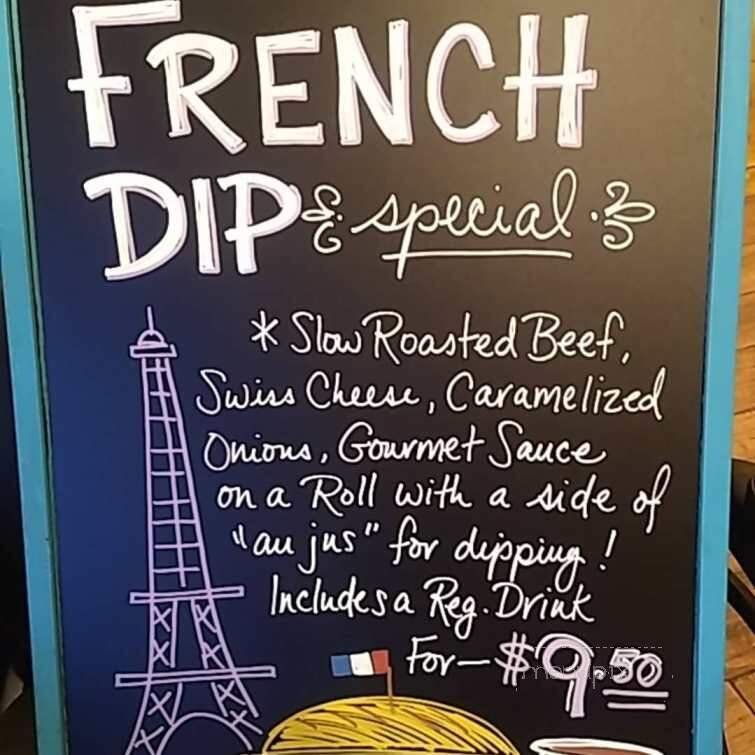 FRENCH
DIP special
* Slow Roasted Beef,
Swiss Cheese, Caramelized
Onions, Gourmet Sauce
on a Roll with a side of
"au jus" for dipping!
Includes a Reg. Drink
For— $9.50